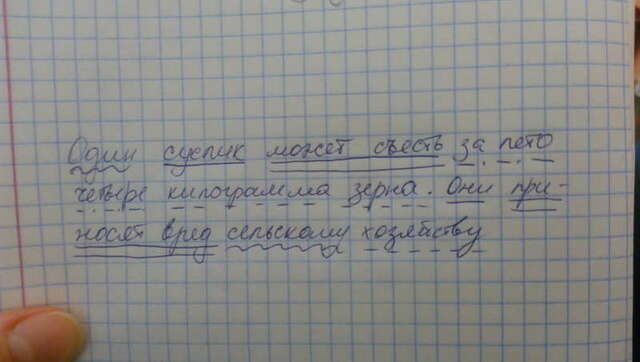 Один суслик может съесть за лето
четыре килограмма зерна. Они при-
носят вред сельскому хозяйству